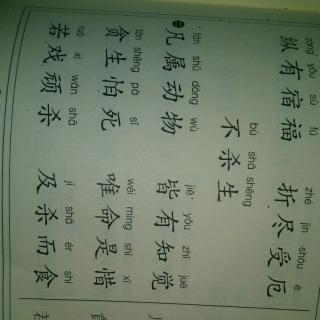 zòng yǒu sù fú zhé jìn shòu è
纵有宿福 折尽受厄
bù shā shēng
不杀生
fán shǔ dòng wù jiē yǒu zhī jué
凡属动物 皆有知觉
tān shēng pà sǐ wéi mìng shì xī
贪生怕死 唯命是惜
ruò xì wán shā jí shā ér shí
若戏顽杀 及杀而食